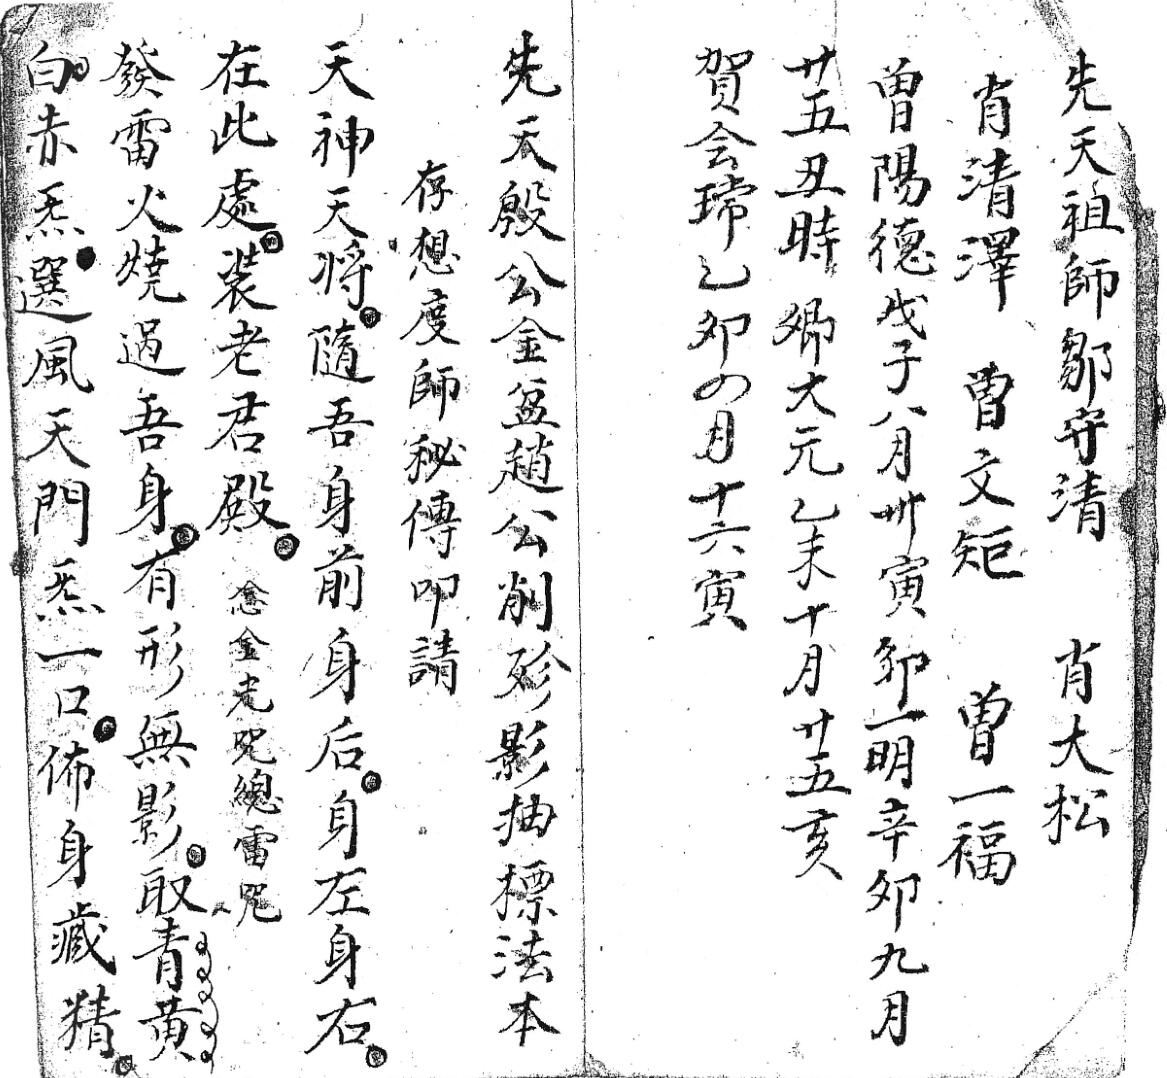 先天祖師鄒守清 肖大松
肖清澤 曾文矩 曾一福
曾陽德戊子八月卅寅卯一明辛卯九月
廿五丑時 卿大元乙未十月廿五亥
賀会瑞乙卯の月十六寅
先天殷公金盆趙公削影抽標法本
存想度師秘傳叩請
天神天将隨吾身前身后身左身右
在此處裝老君殿 念金光咒總雷咒
發雷火燒過吾身有形無影取青黃
白赤炁選風天門炁一口佈身藏精